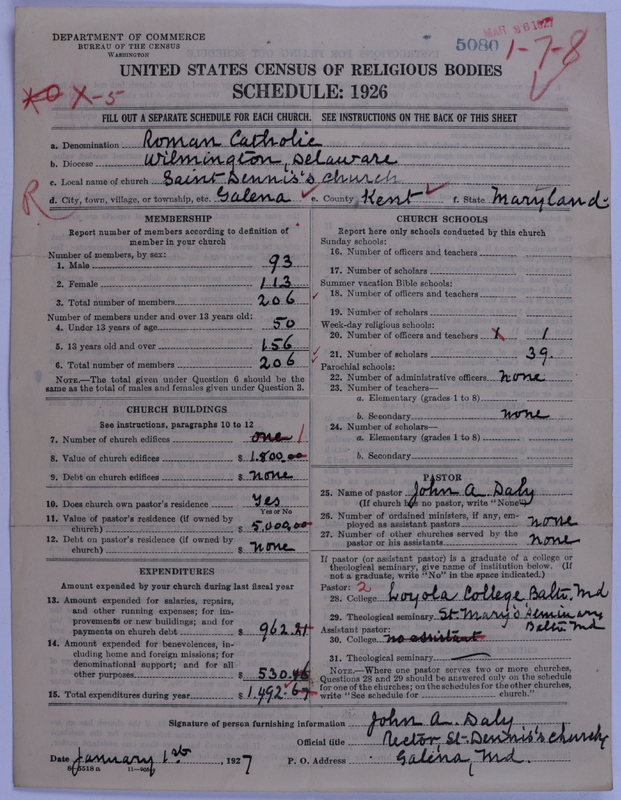 DEPARTMENT OF COMMERCE
BUREAU OF THE CENSUS
WASHINGTON
MAR 26 1927
5080 1-7-8
UNITED STATES CENSUS OF RELIGIOUS BODIES
SCHEDULE: 1926
X-5
FILL OUT A SEPARATE SCHEDULE FOR EACH CHURCH. SEE INSTRUCTIONS ON THE BACK OF THIS SHEET
a. Denomination Roman Catholic
b. Diocese Wilmington, Delaware
c. Local name of church Saint Dennis's Church
R
d. City, town, village, or township, etc. Galena e. County Kent f. State Maryland
MEMBERSHIP
Report number of members according to definition of
member in your church
Number of members, by sex:
1. Male 93
2. Female 113
3. Total number of members 206
Number of members under and over 13 years old:
4. Under 13 years of age 50
5. 13 years old and over 156
6. Total number of members 206
NOTE.—The total given under Question 6 should be the
same as the total of males and females given under Question 3.
CHURCH BUILDINGS
See instructions, paragraphs 10 to 12
7. Number of church edifices one 1
8. Value of church edifices $ 1.800.00
9. Debt on church edifices $ none
10. Does church own pastor's residence Yes
Yes or No
11. Value of pastor's residence (if owned by
church) $ 5.000.00
12. Debt on pastor's residence (if owned by
church) $ none
EXPENDITURES
Amount expended by your church during last fiscal year
13. Amount expended for salaries, repairs,
and other running expenses; for im-
provements or new buildings; and for
payments on church debt $ 962.21
14. Amount expended for benevolences, in-
cluding home and foreign missions; for
denominational support; and for all
other purposes $ 530.46
15. Total expenditures during year $ 1.492.67
CHURCH SCHOOLS
Report here only schools conducted by this church
Sunday schools:
16. Number of officers and teachers
17. Number of scholars
Summer vacation Bible schools:
18. Number of officers and teachers
19. Number of scholars
Week-day religious schools:
20. Number of officers and teachers 1 1
21. Number of scholars 39.
Parochial schools:
22. Number of administrative officers none
23. Number of teachers—
a. Elementary (grades 1 to 8)
b. Secondary none
24. Number of scholars—
a. Elementary (grades 1 to 8)
b. Secondary
PASTOR
25. Name of pastor John A Daly
(If church has no pastor, write "None")
26. Number of ordained ministers, if any, em-
ployed as assistant pastors none
27. Number of other churches served by the
pastor or his assistants none
If pastor (or assistant pastor) is a graduate of a college or
theological seminary, give name of institution below. (If
not a graduate, write "No" in the space indicated.)
Pastor: 2
28. College Loyola College Balto. Md
29. Theological seminary St. Mary's Seminary
Balto. Md
Assistant pastor:
30. College no assistant
31. Theological seminary
NOTE.—Where one pastor serves two or more churches,
Questions 28 and 29 should be answered only on the schedule
for one of the churches; on the schedules for the other churches,
write "See schedule for church."
Signature of person furnishing information John A. Daly
Official title Rector, St. Dennis's church,
Date January 1st, 1927 P. O. Address Galena, Md.